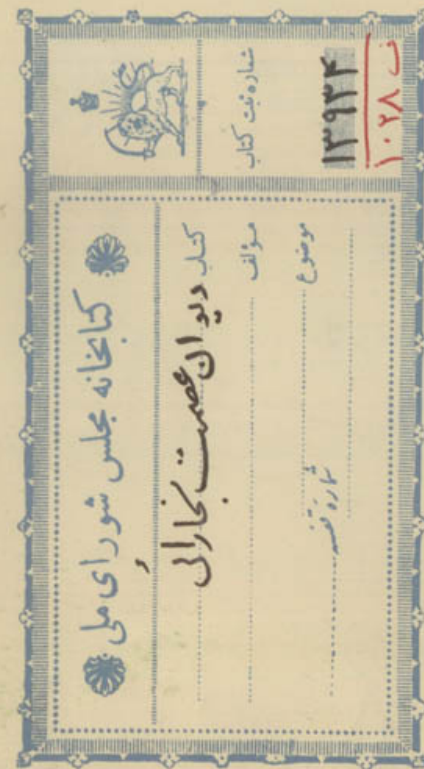 کتابخانه مجلس شورای ملی
کتاب دیوان عصمت بخارائی
مؤلف
موضوع
شماره قفسه
شماره ثبت کتاب
۱۳۹۳۴
ف ۱۰۲۸